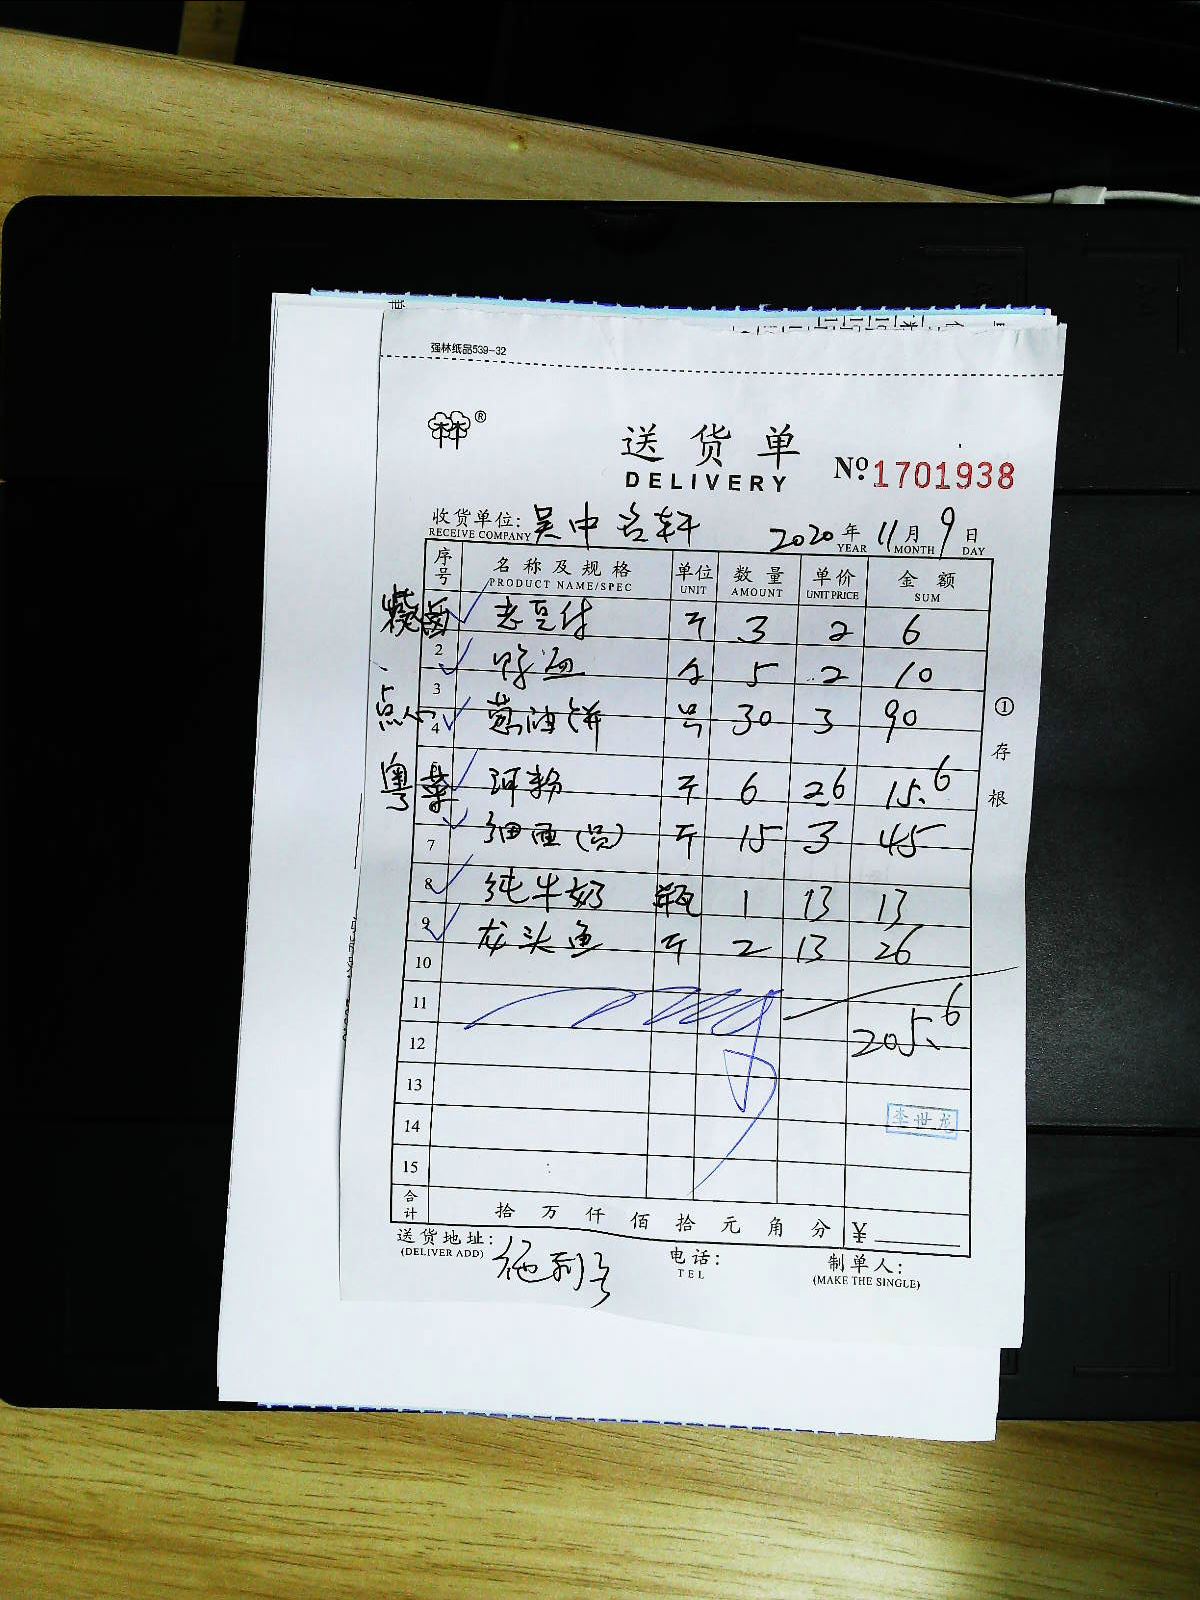 强林纸品539-32
林林®
送货单
DELIVERY
Nº.1701938
收货单位: 吴中名轩 2020年11月9日
RECEIVE COMPANY YEAR MONTH DAY
序号 名称及规格 单位 数量 单价 金额
PRODUCT NAME/SPEC UNIT AMOUNT UNIT PRICE SUM
老豆付 斤 3 2 6
2 鸭血 5 2 10
3
点心 4 葱油饼 30 3 90
粤菜 河粉 斤 6 2.6 15.6
7 细面 斤 15 3 45
8 纯牛奶 瓶 1 13 13
9 龙头鱼 斤 2 13 26
10
11
205.6
12
13
李世龙
14
15
合计 拾 万 仟 佰 拾 元 角 分 ¥
送货地址:
(DELIVER ADD)
电话:
TEL
制单人:
(MAKE THE SINGLE)
①存根